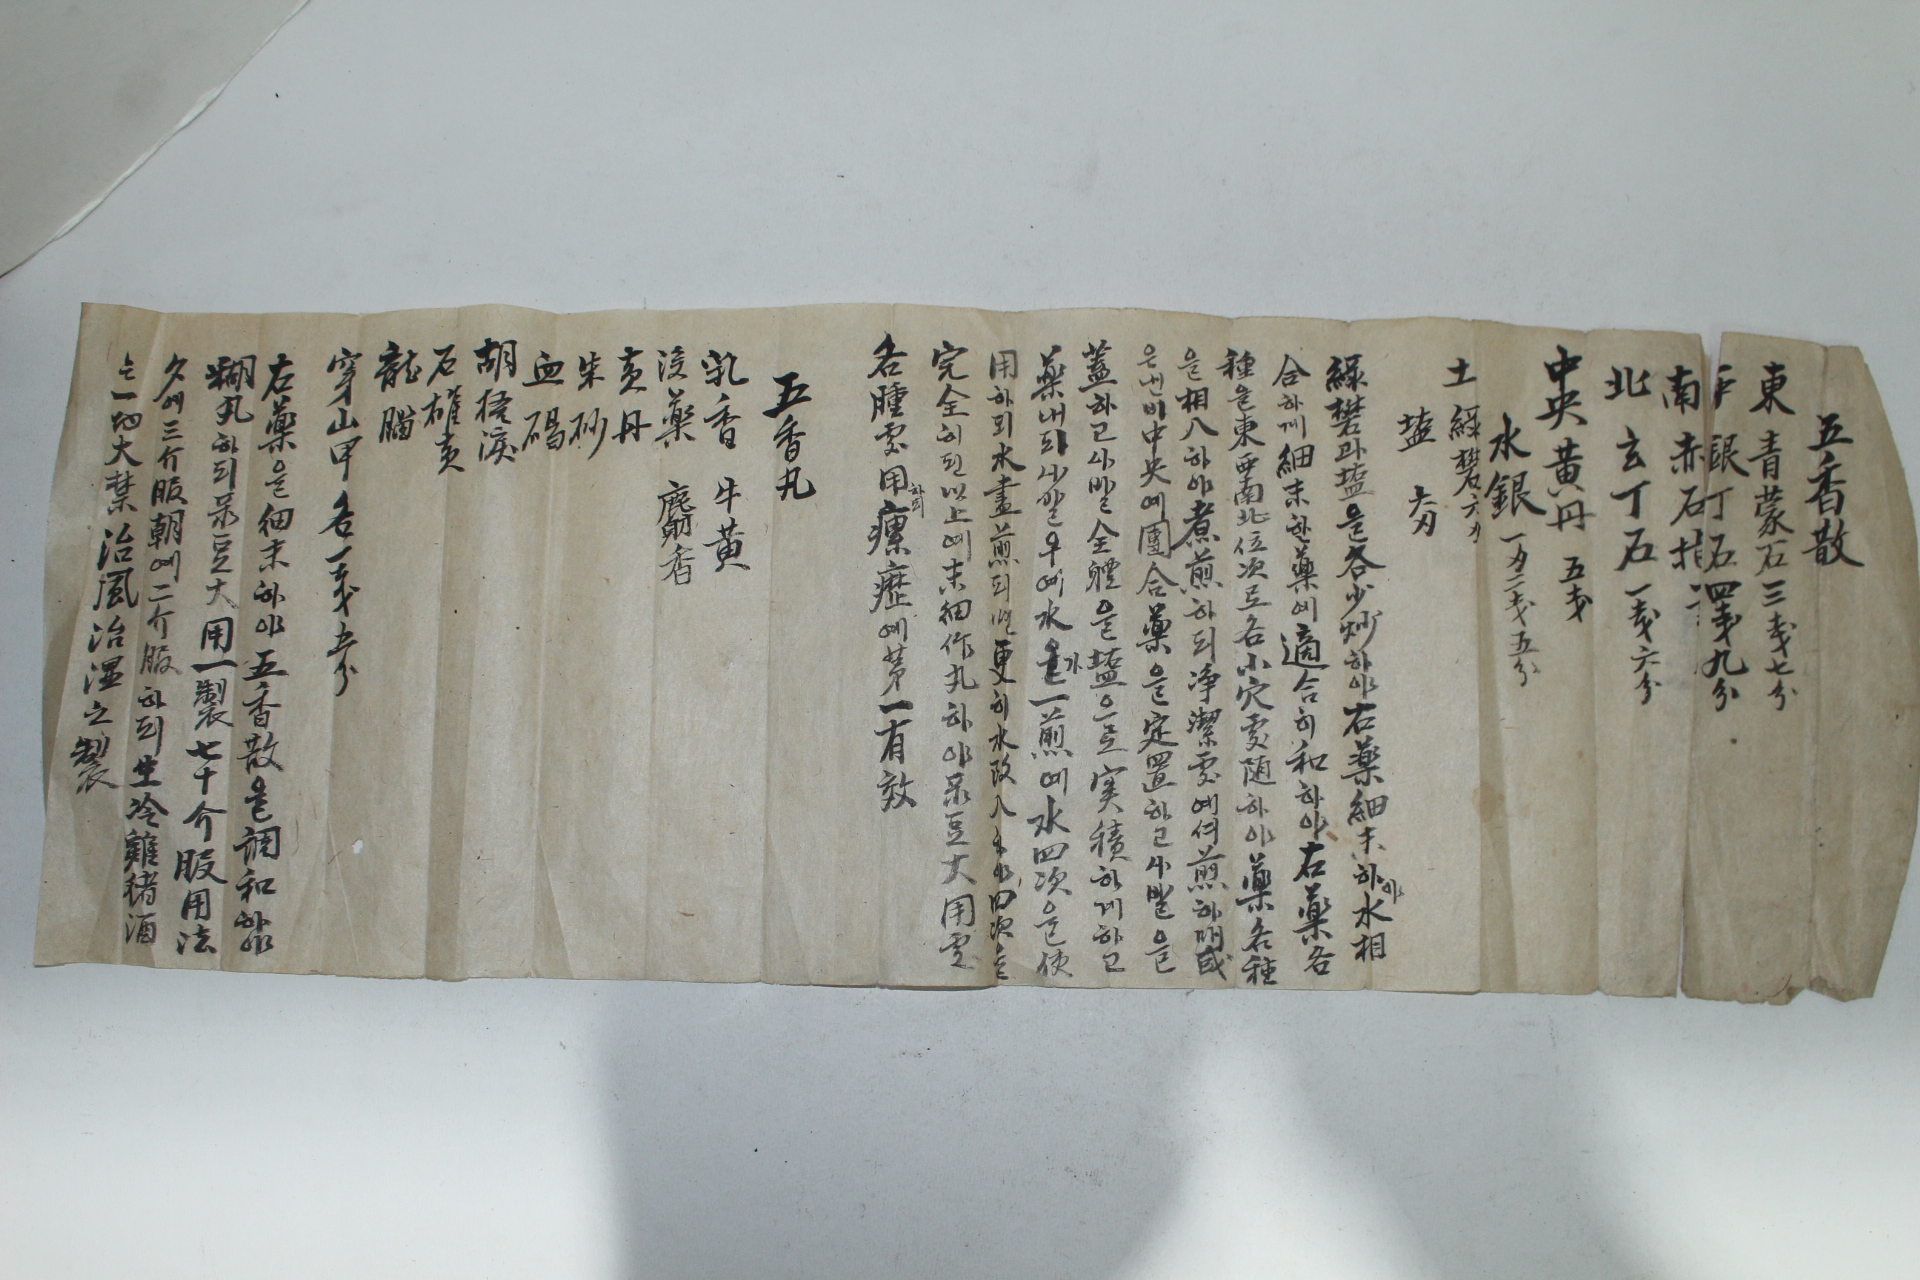 五香散
東 青蒙石 三戔七分
銀丁石 四戔九分
南 赤石
北 玄丁石 一戔六分
中央 黃丹 五戔
水銀 一刃二戔五分
土 綠礬 六刃
塩 六刃
綠礬과塩을各少炒하야右藥細末하야水相
合하게細末한藥에適合히和하야右藥各
種을東西南北位次로各小穴處随하야藥各種
을相入하야煮煎하되净潔處에셔煎하
中央에團合藥을定置하고사발을
蓋하고사발全體을塩으로実積하게하고
藥내되사발우에水을가一煎에水四次을使
用하되水盡煎되면更히水改入하야四次を
完全히된以上에末細作丸하야菉豆大用處
各腫處用하되瘰癧에第一有效
五香丸
乳香 牛黃
没藥 麝香
黃丹
朱砂
血碣
胡桐淚
石雄黃
龍腦
穿山甲 各一戔五分
右藥을細末하야五香散을調和하야
糊丸하되菉豆大用一製七十介服用法
夕에三介服朝에二介服하되生冷雞猪酒
는一切大禁治風治湿之製